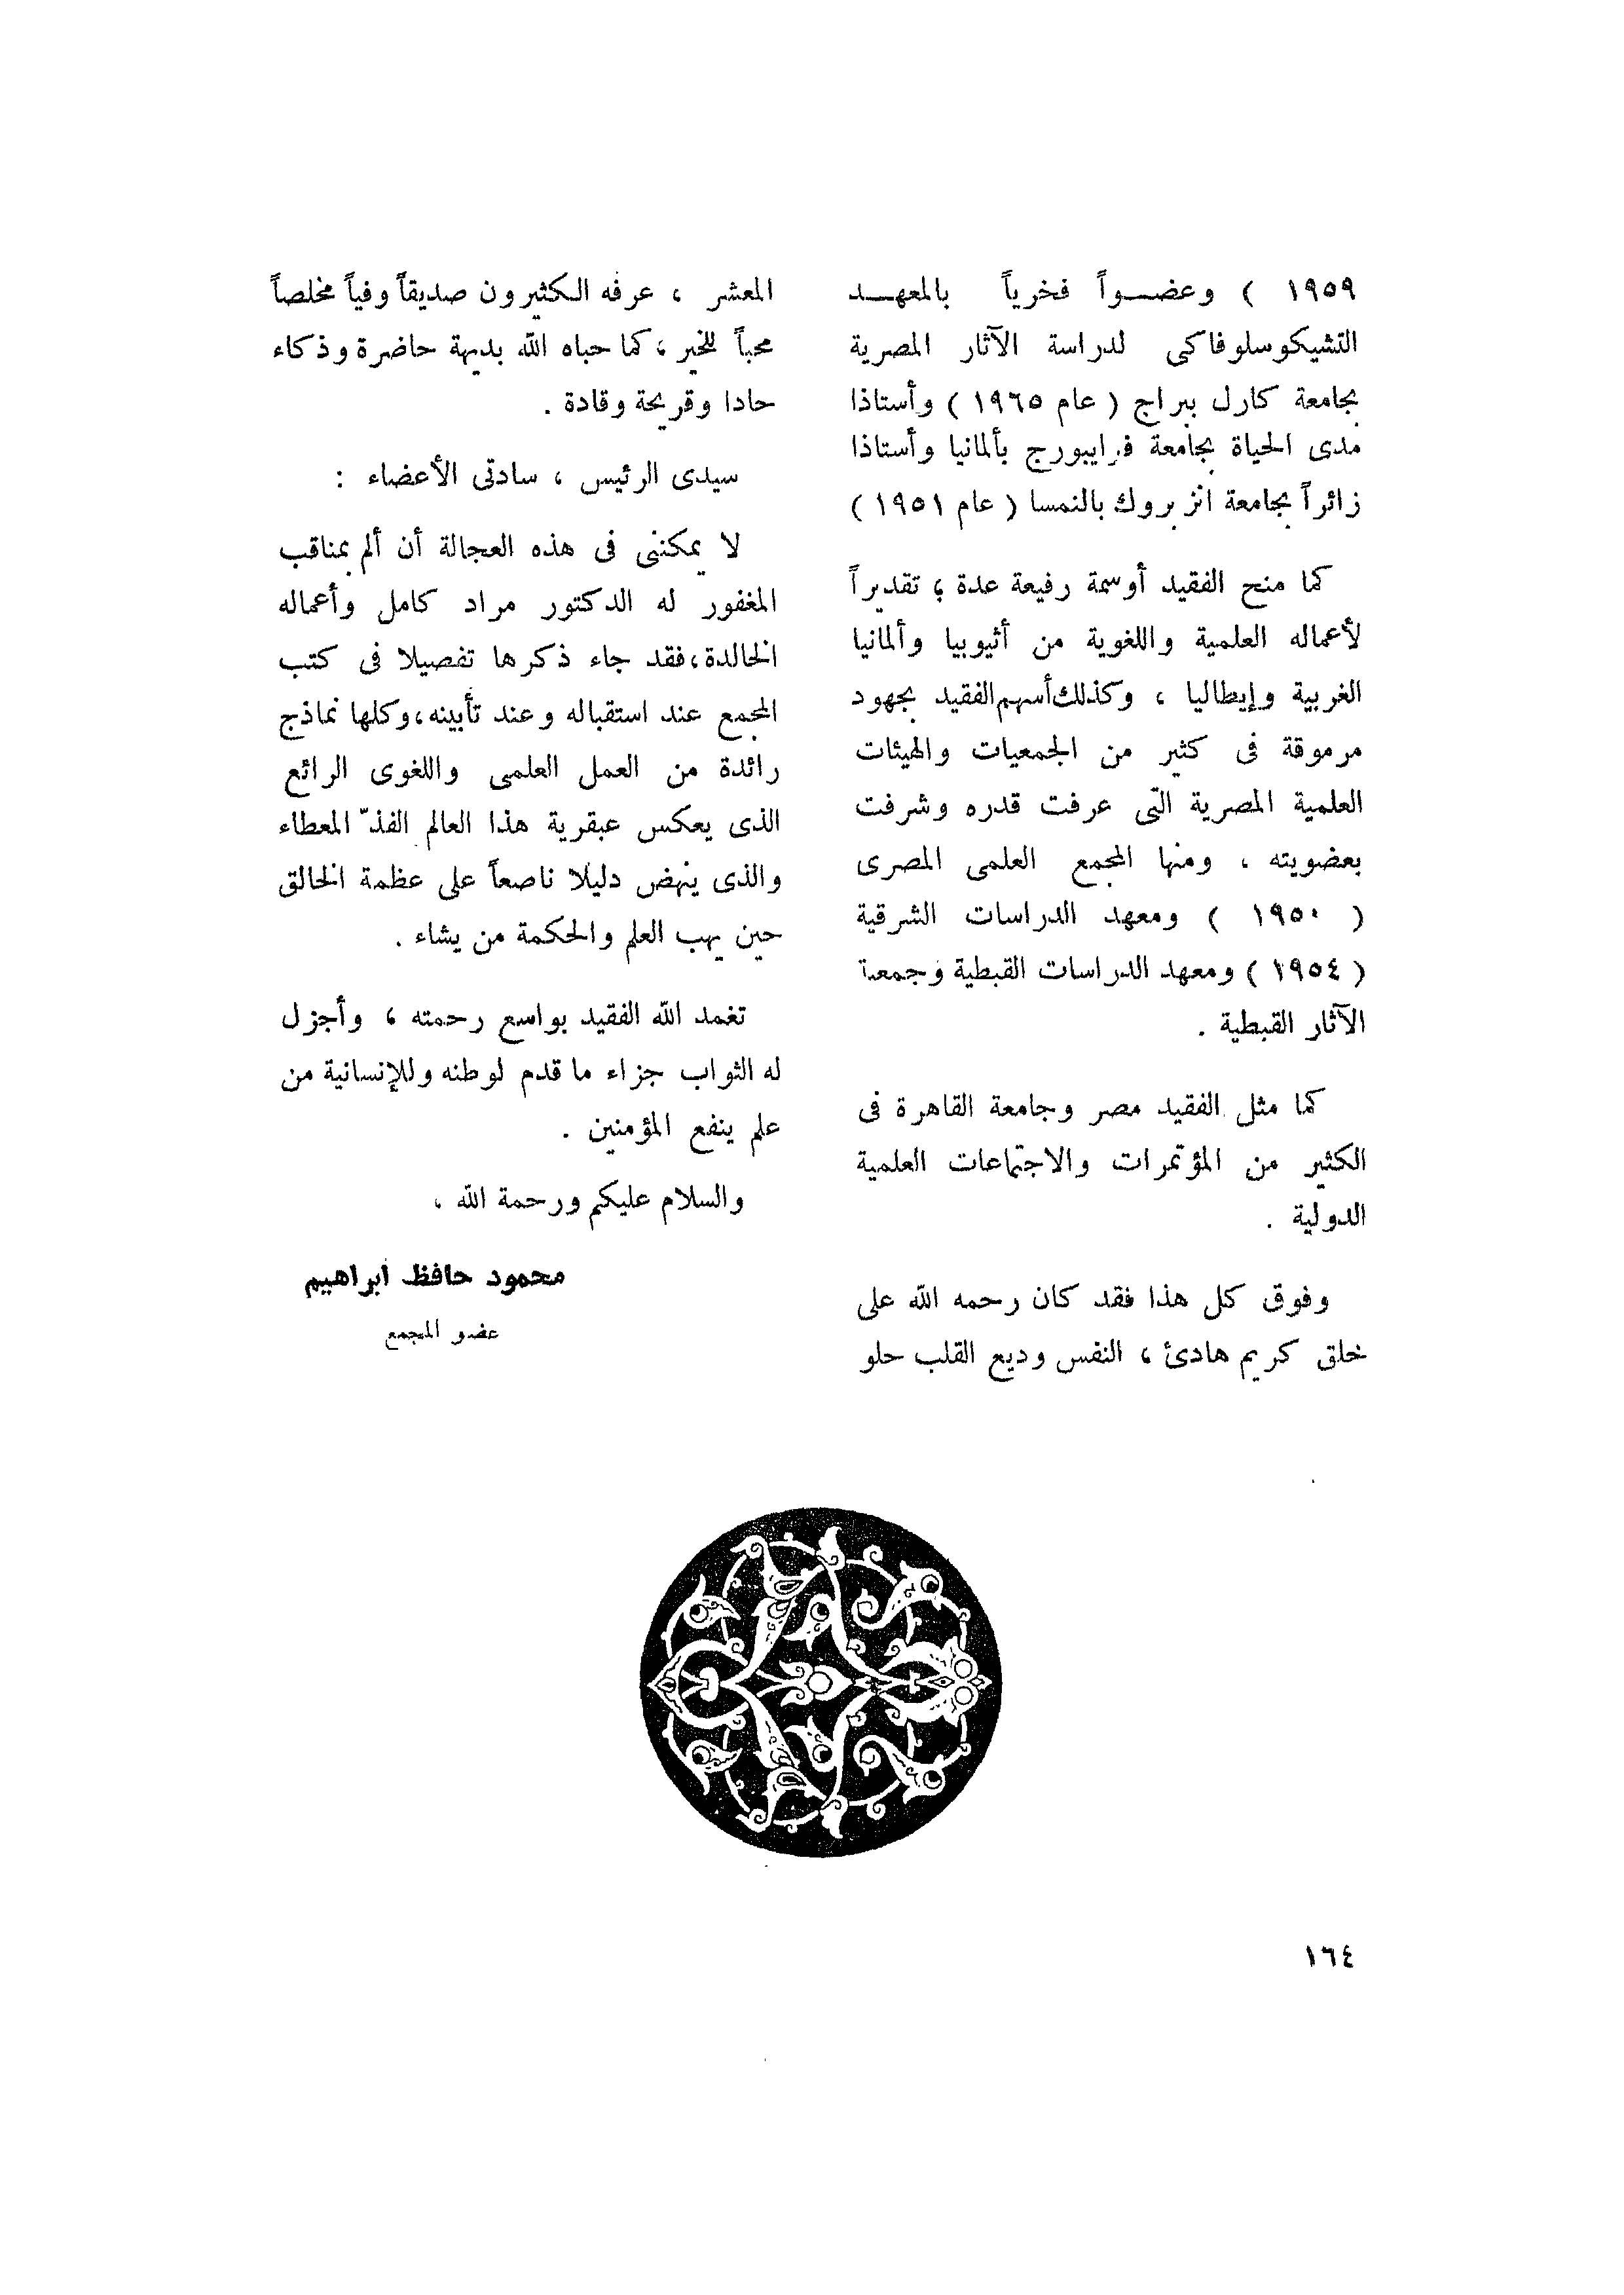 ١٩٥٩ ) وعضــواً فخرياً بالمعهــد
التشيكوسلوفاكى لدراسة الآثار المصرية
بجامعة كارل ببراج ( عام ١٩٦٥ ) وأستاذا
مدى الحياة بجامعة فرايبورج بألمانيا وأستاذا
زائراً بجامعة انزبروك بالنمسا ( عام ١٩٥١ )
كما منح الفقيد أوسمة رفيعة عدة ؛ تقديراً
لأعماله العلمية واللغوية من أثيوبيا وألمانيا
الغربية وإيطاليا ، وكذلك أسهم الفقيد بجهود
مرموقة فى كثير من الجمعيات والهيئات
العلمية المصرية التى عرفت قدره وشرفت
بعضويته ، ومنها المجمع العلمى المصرى
( ١٩٥٠ ) ومعهد الدراسات الشرقية
( ١٩٥٤ ) ومعهد الدراسات القبطية وجمعية
الآثار القبطية .
كما مثل الفقيد مصر وجامعة القاهرة فى
الكثير من المؤتمرات والاجتماعات العلمية
الدولية .
وفوق كل هذا فقد كان رحمه الله على
خلق كريم هادئ ، النفس وديع القلب حلو
المعشر ، عرفه الكثيرون صديقاً وفياً مخلصاً
محباً للخير ، كما حباه الله بديهة حاضرة وذكاء
حادا وقريحة وقادة .
سيدى الرئيس ، سادتى الأعضاء :
لا يمكننى فى هذه العجالة أن ألم بمناقب
المغفور له الدكتور مراد كامل وأعماله
الخالدة ، فقد جاء ذكرها تفصيلا فى كتب
المجمع عند استقباله وعند تأبينه ، وكلها نماذج
رائدة من العمل العلمى واللغوى الرائع
الذى يعكس عبقرية هذا العالم الفذّ المعطاء
والذى ينهض دليلا ناصعاً على عظمة الخالق
حين يهب العلم والحكمة من يشاء .
تغمد الله الفقيد بواسع رحمته ، وأجزل
له الثواب جزاء ما قدم لوطنه وللإنسانية من
علم ينفع المؤمنين .
والسلام عليكم ورحمة الله ،
محمود حافظ ابراهيم
عضو المجمع
١٦٤